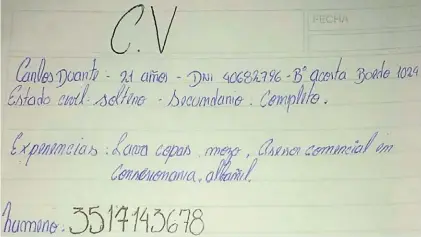 FECHA
C.V
Carlos Duarte - 21 años - DNI 40682796 - B° acosta Boedo 1024
Estado civil - soltero - Secundario. Completo.
Experiencias: Lava copas, mozo, Asesor comercial en
Consesionaria, albañil.
humero. 3517143678